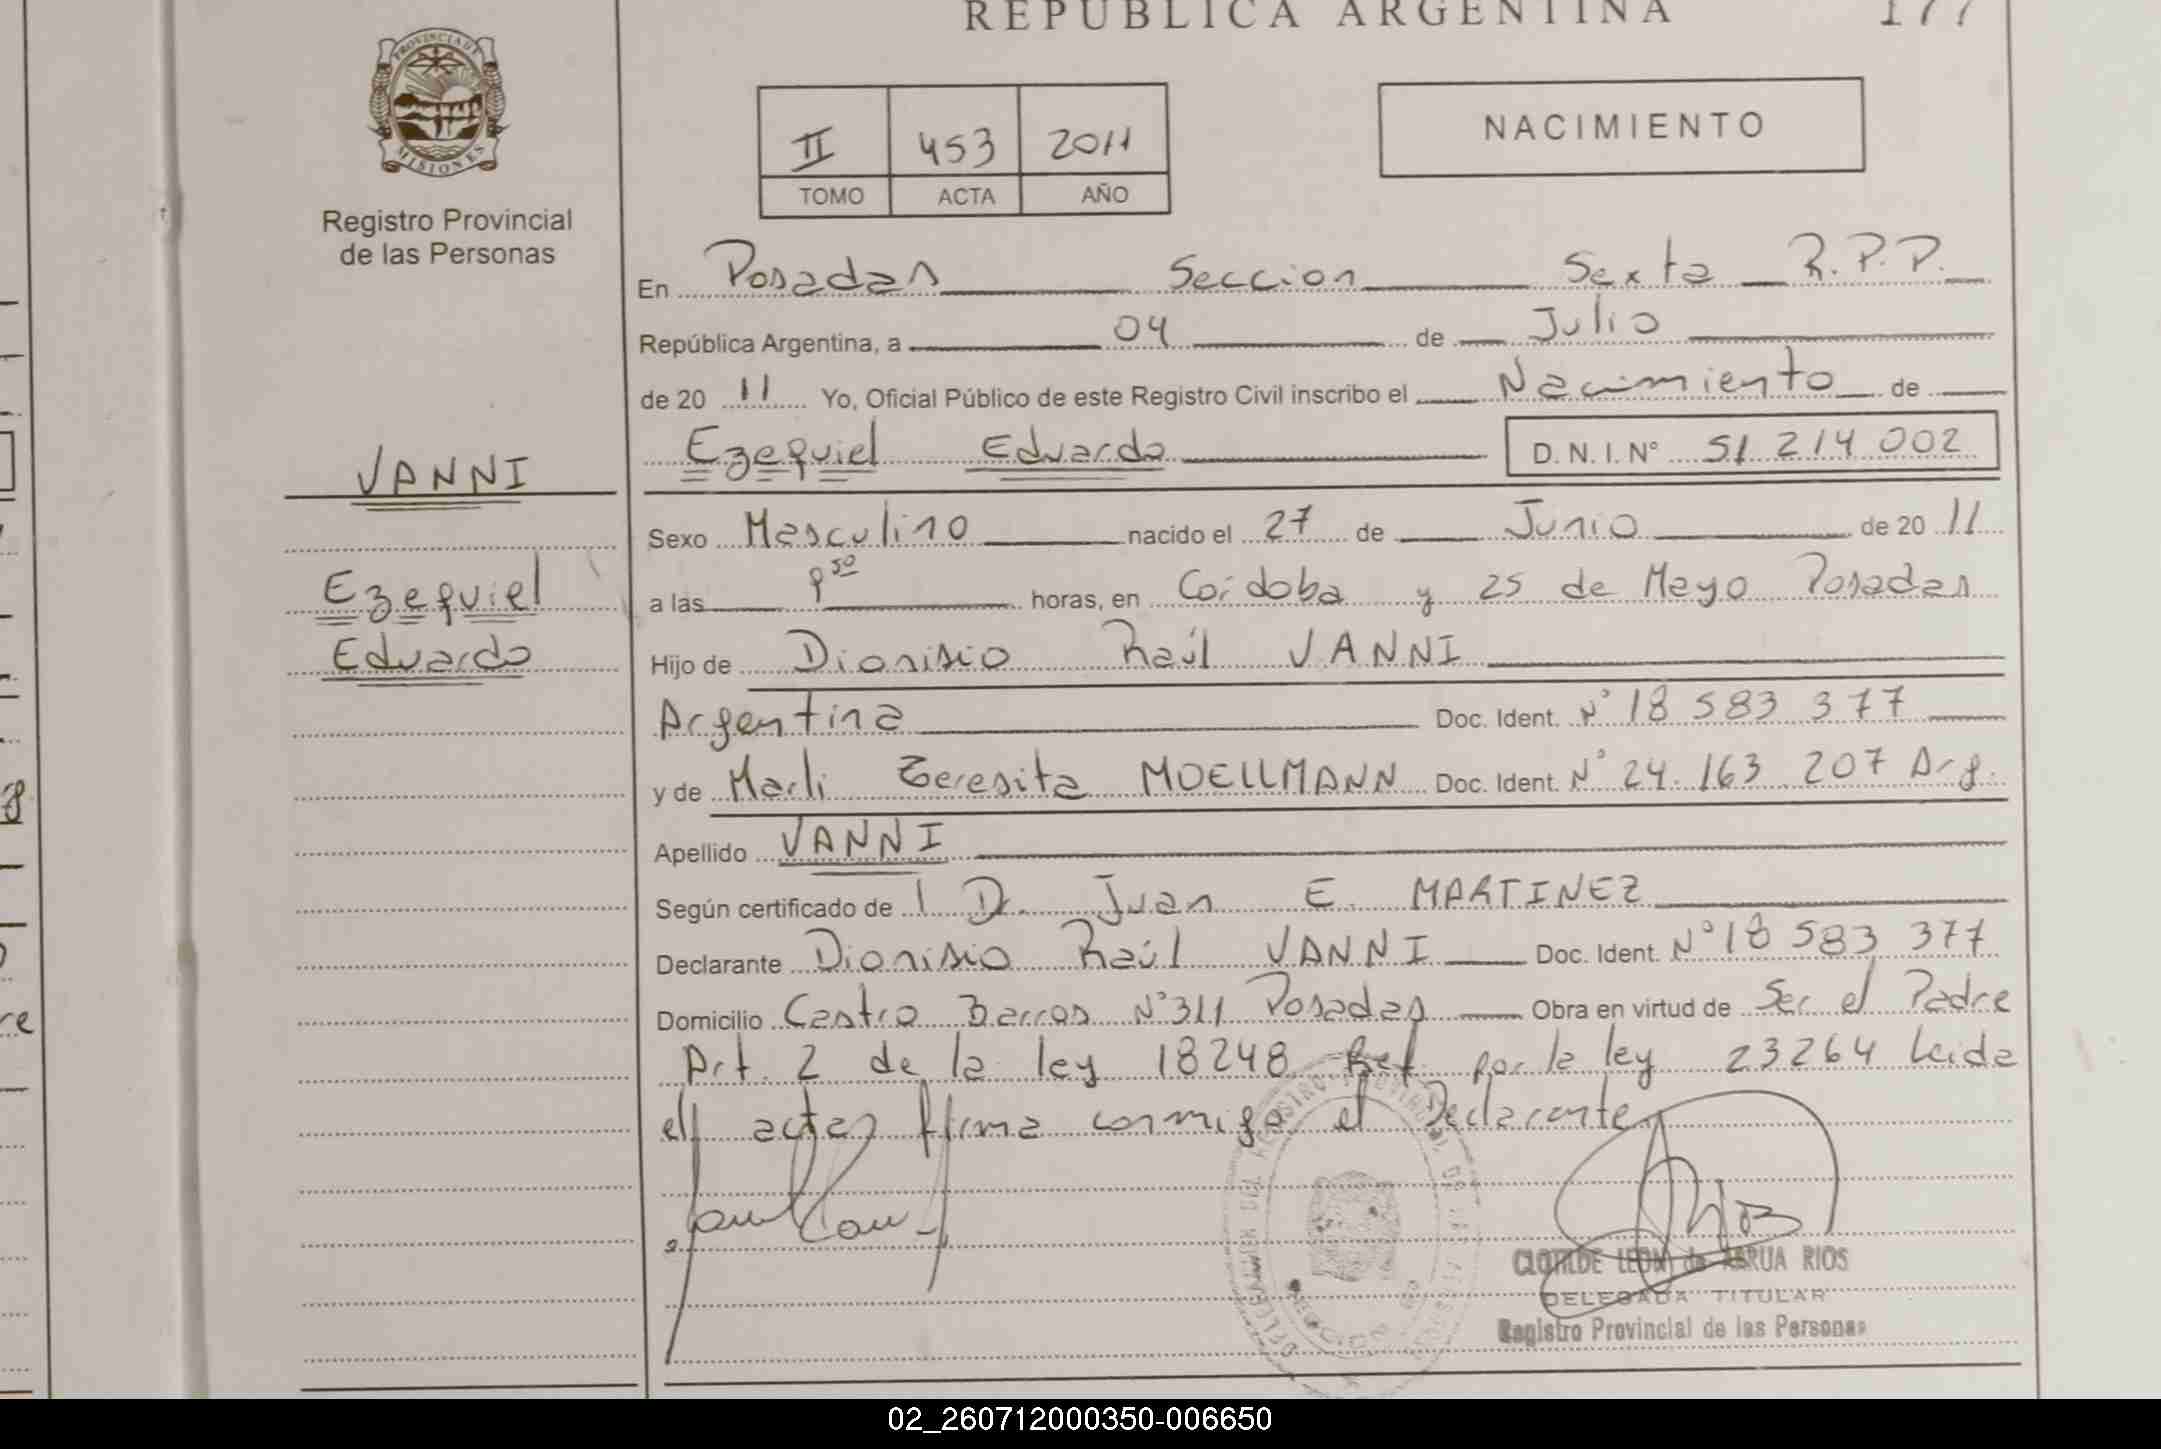 REPUBLICA ARGENTINA 177
PROVINCIA DE
MISIONES
Registro Provincial
de las Personas
II 453 2011
TOMO ACTA AÑO
NACIMIENTO
En Posadas Seccion Sexta R.P.P.
República Argentina, a 04 de Julio
de 20 11 Yo, Oficial Público de este Registro Civil inscribo el Nacimiento de
Ezequiel Eduardo D.N.I. N° 51 214 002
VANNI
Ezequiel
Eduardo
Sexo Masculino nacido el 27 de Junio de 20 11
a las horas, en Córdoba y 25 de Mayo Posadas
Hijo de Dionisio Raúl VANNI
Argentina Doc. Ident. N° 18 583 377
y de Marli Teresita MOELLMANN Doc. Ident. N° 24.163 207 Arg.
Apellido VANNI
Según certificado de l Dr. Juan E. MARTINEZ
Declarante Dionisio Raúl VANNI Doc. Ident. N° 18 583 377
Domicilio Castro Barros N° 311 Posadas Obra en virtud de Ser el Padre
Art. 2 de la ley 18248 Ref por la ley 23264 Leida
el acta firma conmigo el Declarante
CLOTILDE LEON de RIOS
DELEGADA TITULAR
Registro Provincial de las Personas
02_260712000350-006650